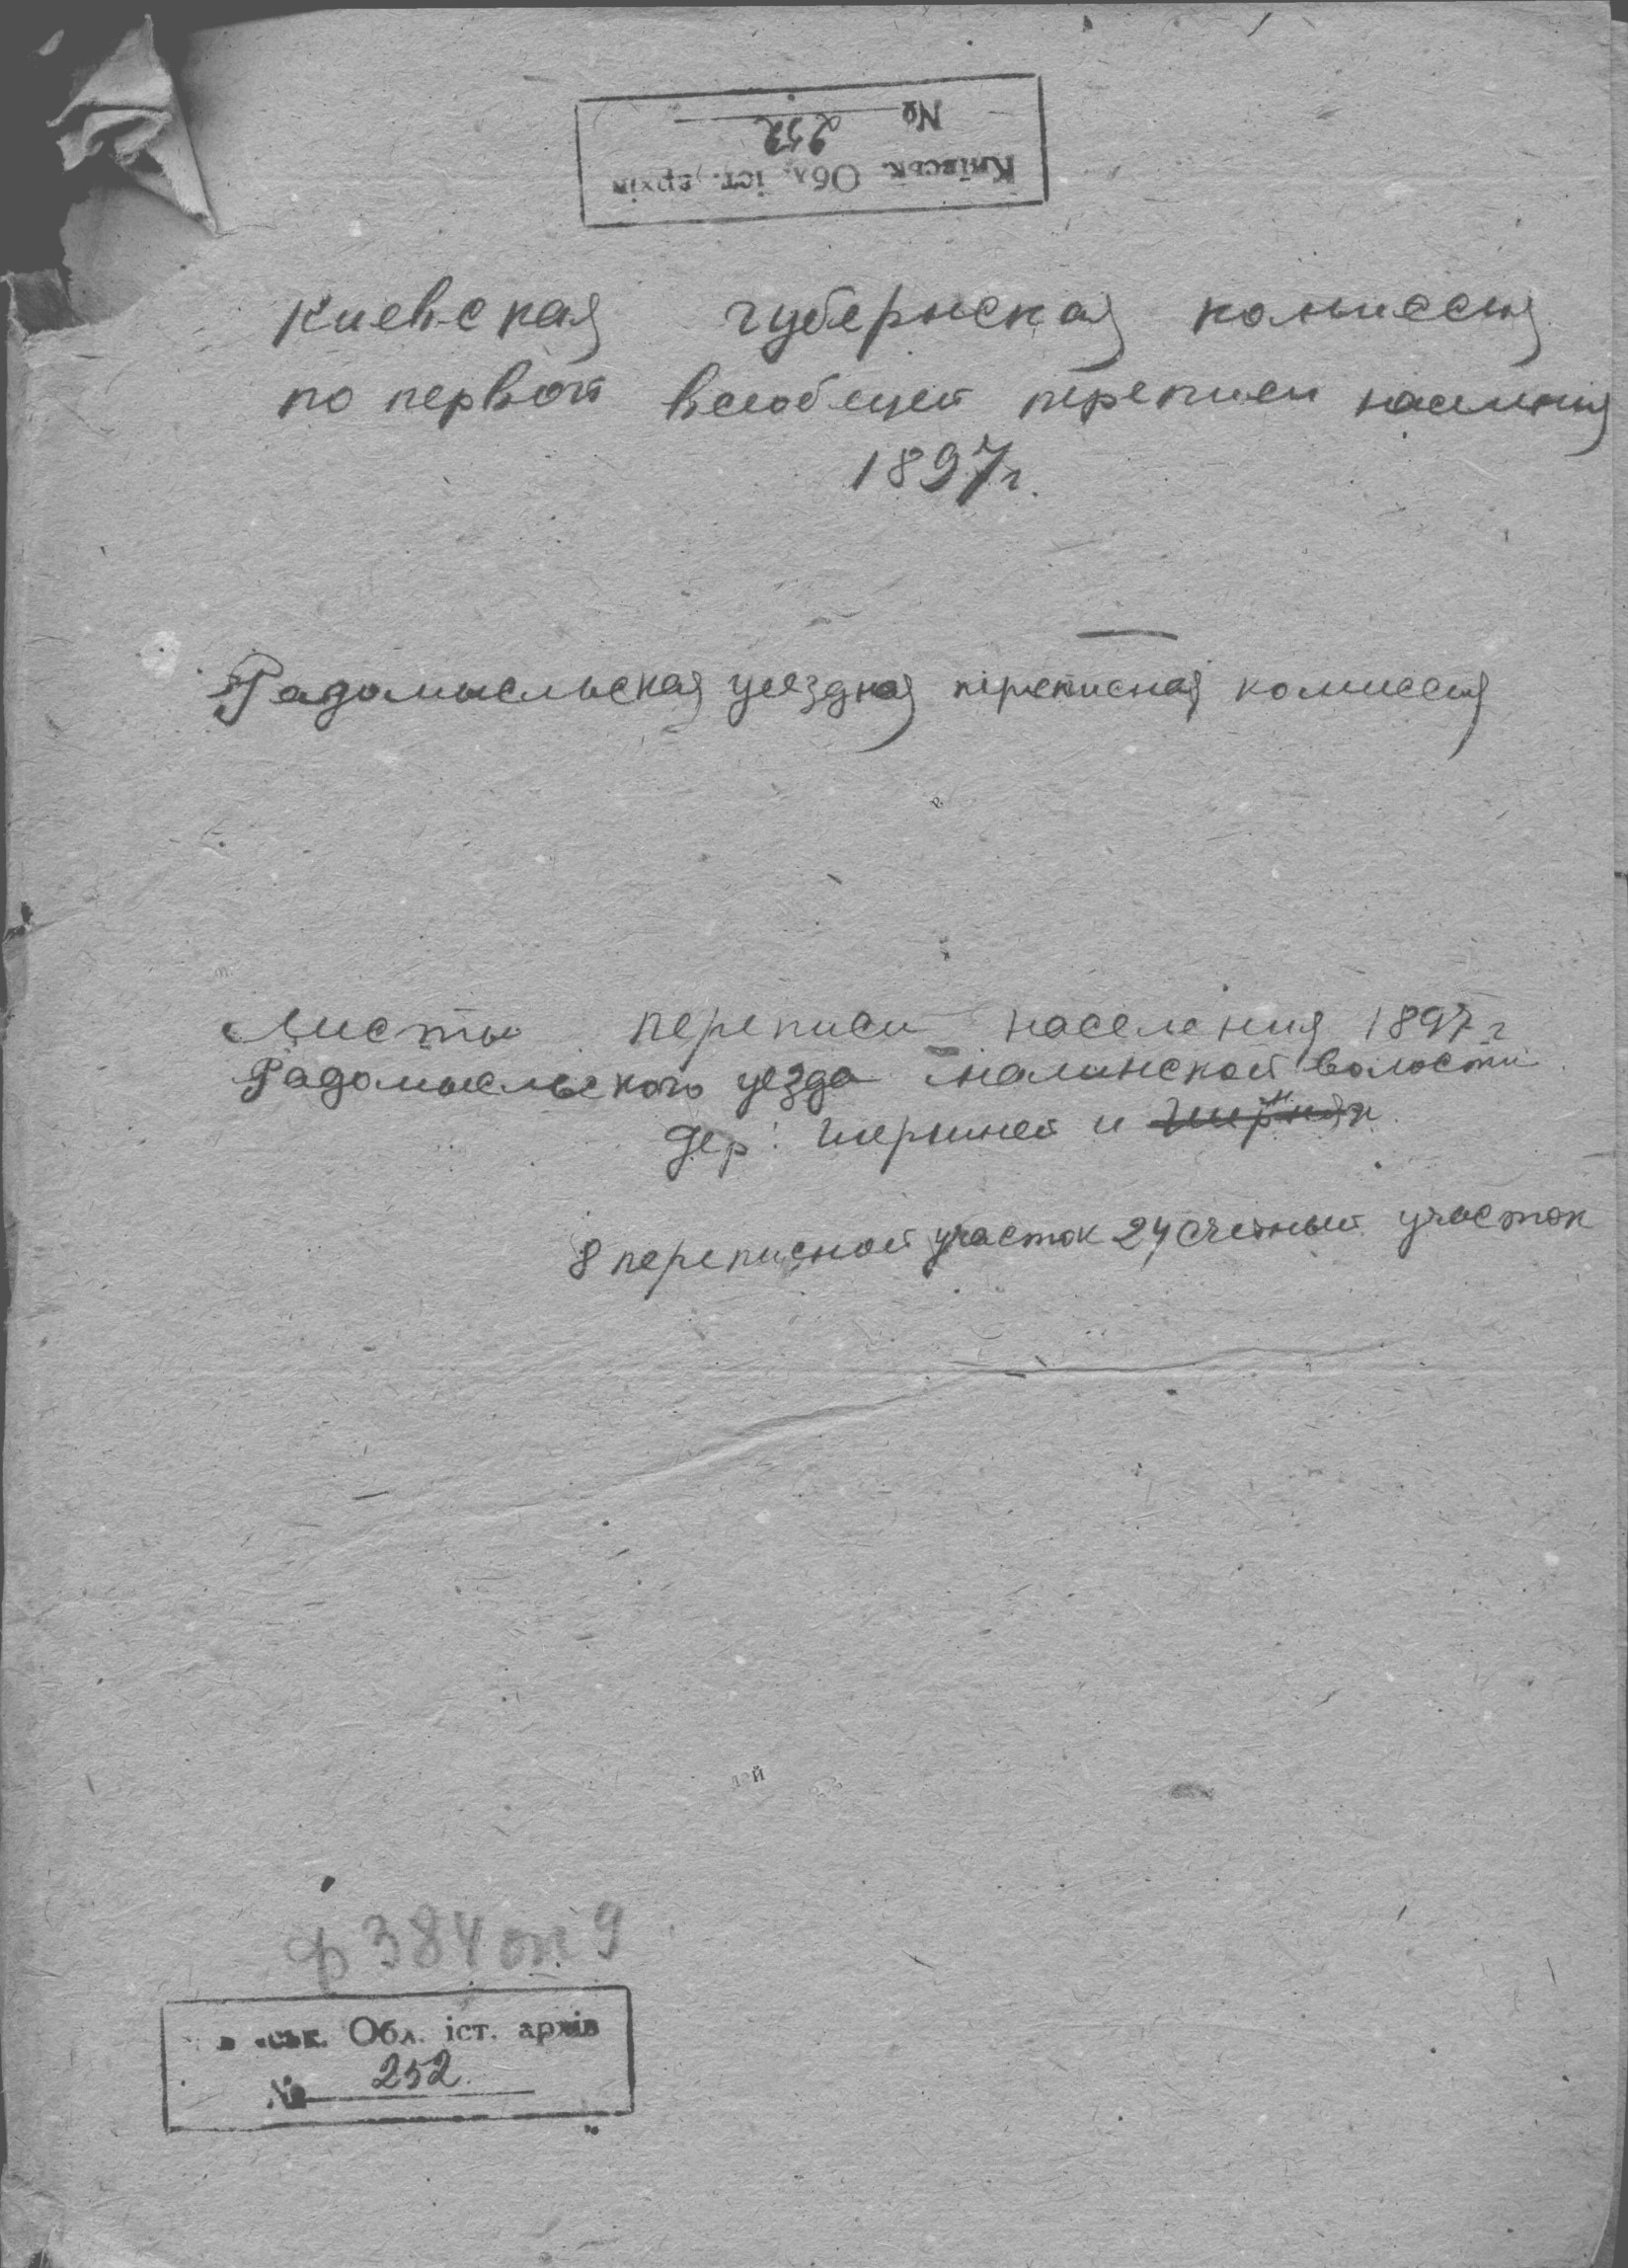 Київськ. Обл. іст. архів
№ 252
Киевская губернская комиссия
по первой всеобщей переписи населения
1897 г.
Радомысльская уездная переписная комиссия
Листы переписи населения 1897 г
Радомысльского уезда Малинской волости
дер: и
8 переписной участок 24 счетный участок
ф 384 оп 9
ськ. Обл. іст. архів
№ 252